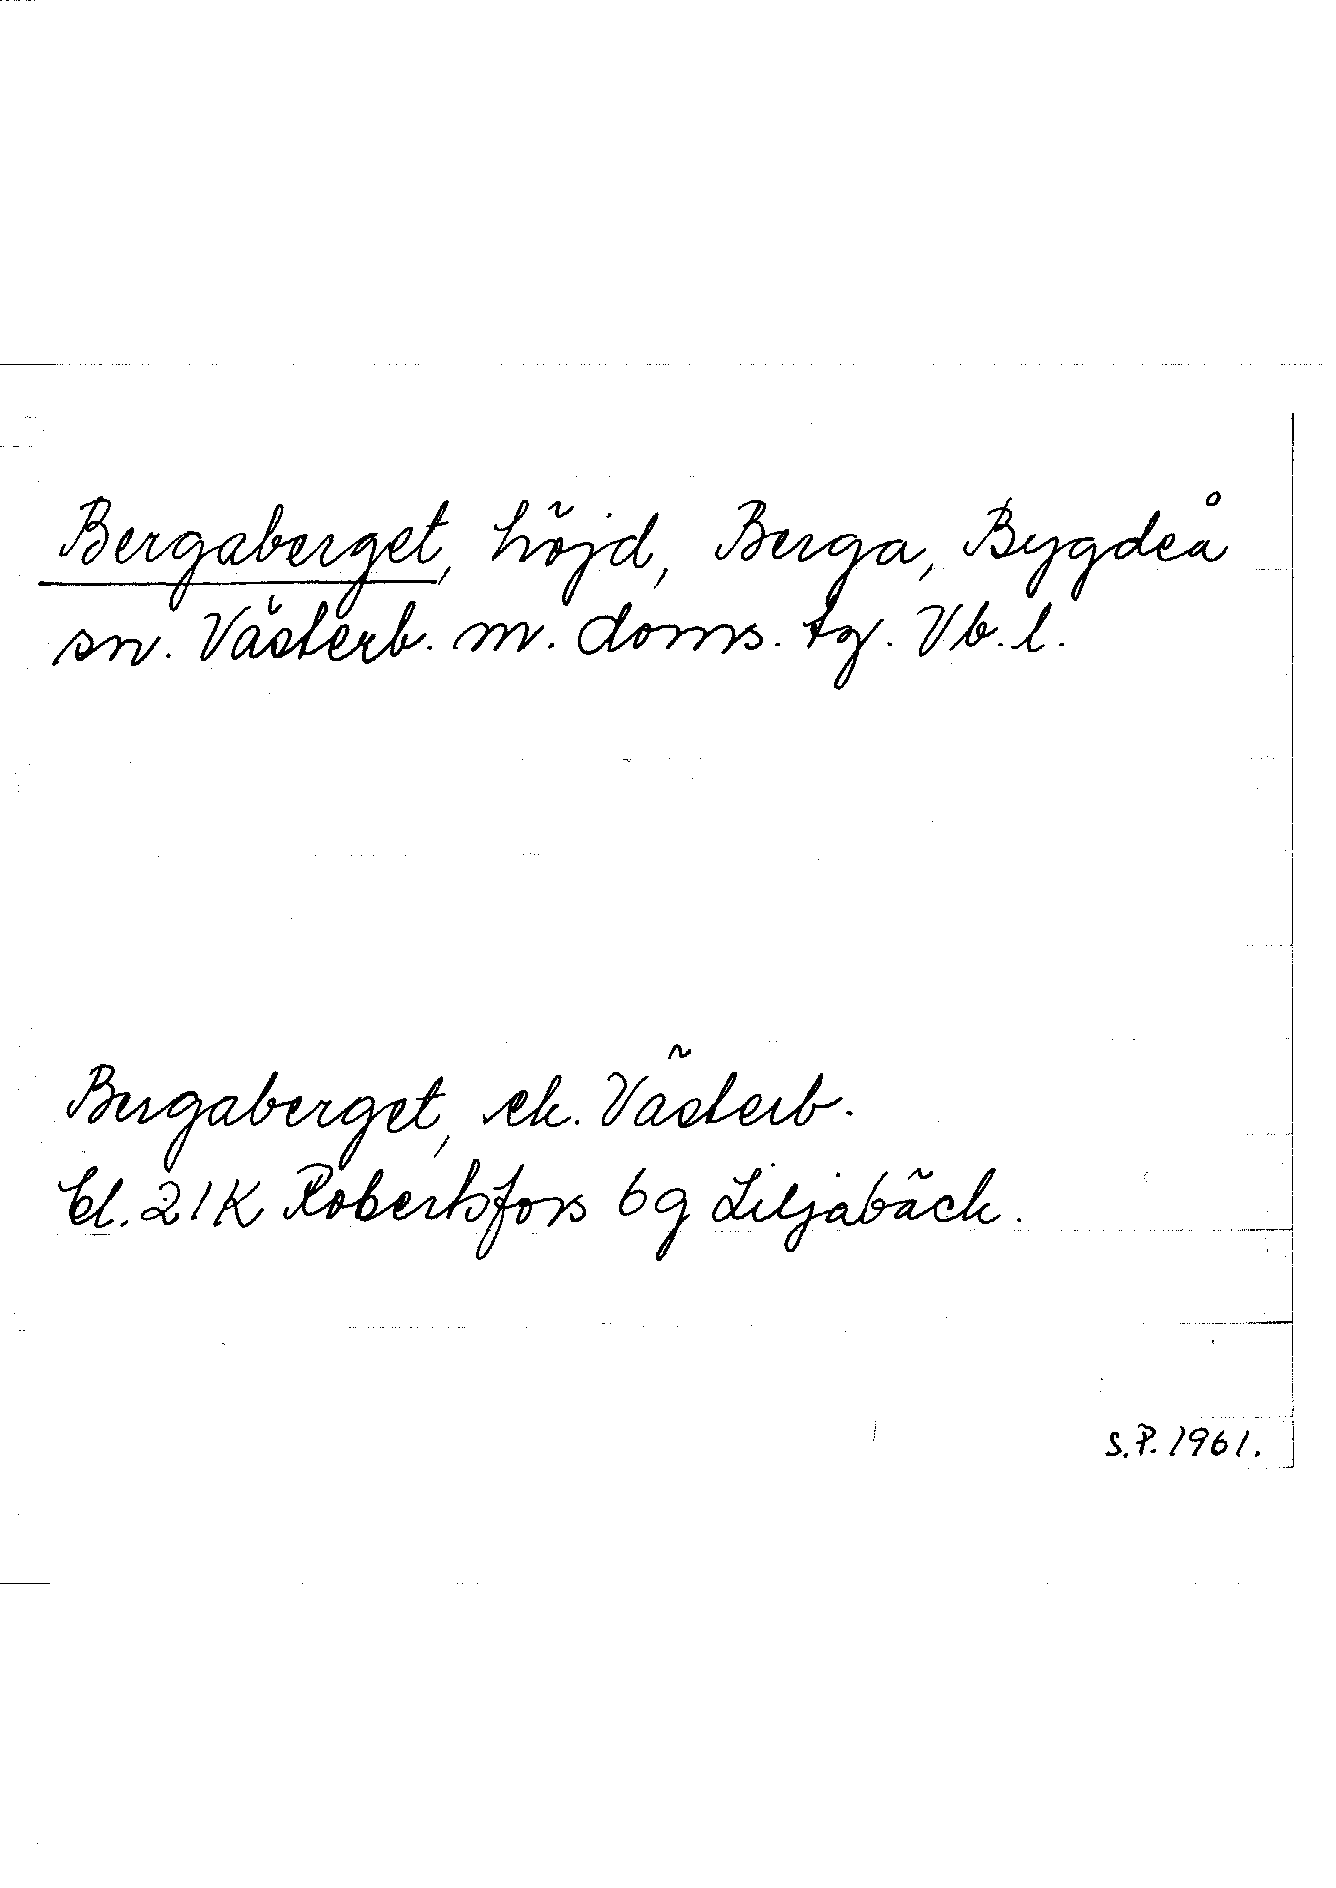 Bergaberget, höjd, Berga, Bygdeå
sn. Västerb. m. doms. tg. Vb. l.
Bergaberget, ek. Västerb.
bl. 21K Robertsfors 6g Liljabäck.
S.P. 1961.